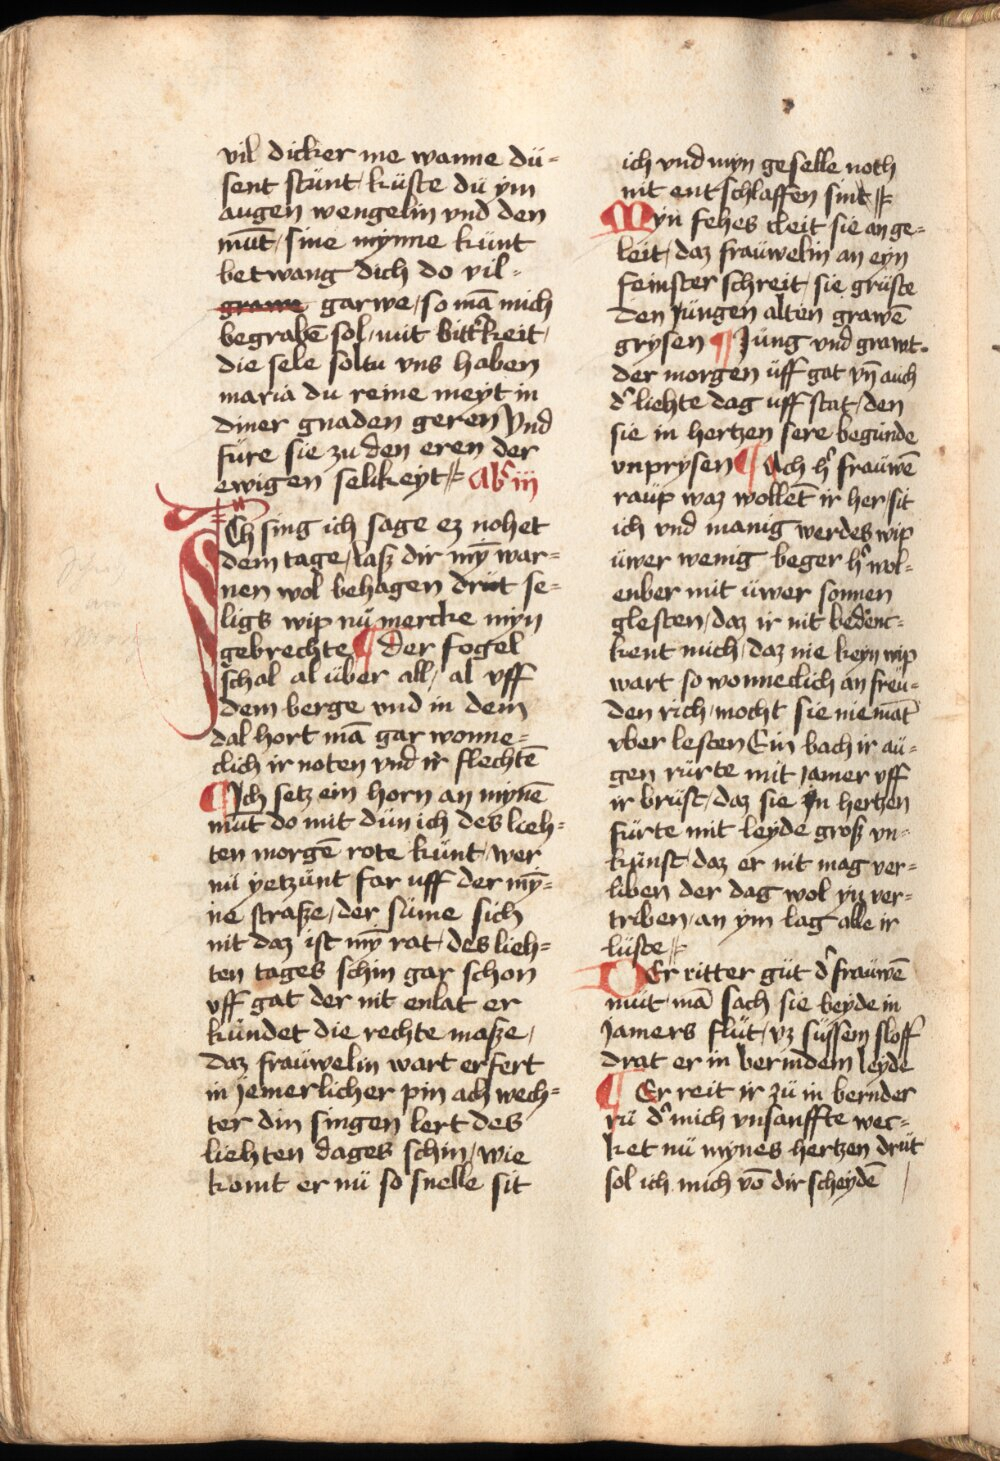 vil dicker me wanne dü-
sent stünt / küste dü ym
augen wengelin vnd den
mūt / sine mynne künt
betwang dich do vil-
grawe garwe / so mā mich
begrabē sol / mit bittˀkeit /
die sele soltu vns haben
maria du reine meyt in
diner gnaden geren Vnd
füre sie zu den eren der
ewigen selikeyt Abˀ iij
Ich sing ich sage ez nohet
dem tage / laß dir mȳ war=
nen wol behagen drüt se=
ligs wip nü mercke myn
gebrechte ¶ der fogel
schal al über all / al vff
dem berge vnd in dem
dal hort mā gar wonne=
clich ir noten vnd ir flechtē
¶ Ich setz ein horn an mynē
mūt do mit dün ich des lieh=
ten morgē rote künt / wer
nü yetzünt far uff der mȳ=
ne straße / der süme sich
nit daz ist mȳ rat / des lieh=
ten tages schin gar schon
vff gat der nit enlat er
kündet die rechte maße /
daz fraüwelin wart erfert
in jemerlicher pin ach wech=
ter din singen lert des
liehten dages schin / wie
komt er nü so snelle sit
ich vnd myn geselle noth
nit entschlaffen sint
Myn fehes cleit sie an ge=
leit / daz fraüwelin an eyn
feinster schreit / sie grüste
den jüngen alten grawē
grysen ¶ Jüng vnd grawt.
der morgen üff gat vn̄ auch
dˀ liehte dag uff stat / den
sie in hertzen sere begünde
vnprysen ¶ Ach hˀ fraüwē
raüp waz wollēt ir her / sit
ich vnd manig werdes wip
üwer wenig beger hˀ wol=
enber mit üwer sonnen
glesten / daz ir nit bedenc=
kent mich / daz nie keyn wip
wart so wonneclich an freü=
den rich / mocht sie niemāt
vber lesten Ein bach ir aü=
gen rürte mit jamer vff
ir brüst / daz sie in hertzen
fürte mit leyde groß vn=
künst / daz er nit mag ver=
liben der dag wol yn ver=
triben / an ym lag alle ir
lüste
Der ritter güt dˀ fraüwē
müt / mā sach sie beyde in
Jamers flüt / vz süssem sloff
drat er in berndem leyde
¶ Er reit ir zü in bernder
rü dˀ mich vnsanffte wec=
ket nü mynes hertzen drüt
sol ich mich vō dir scheydē